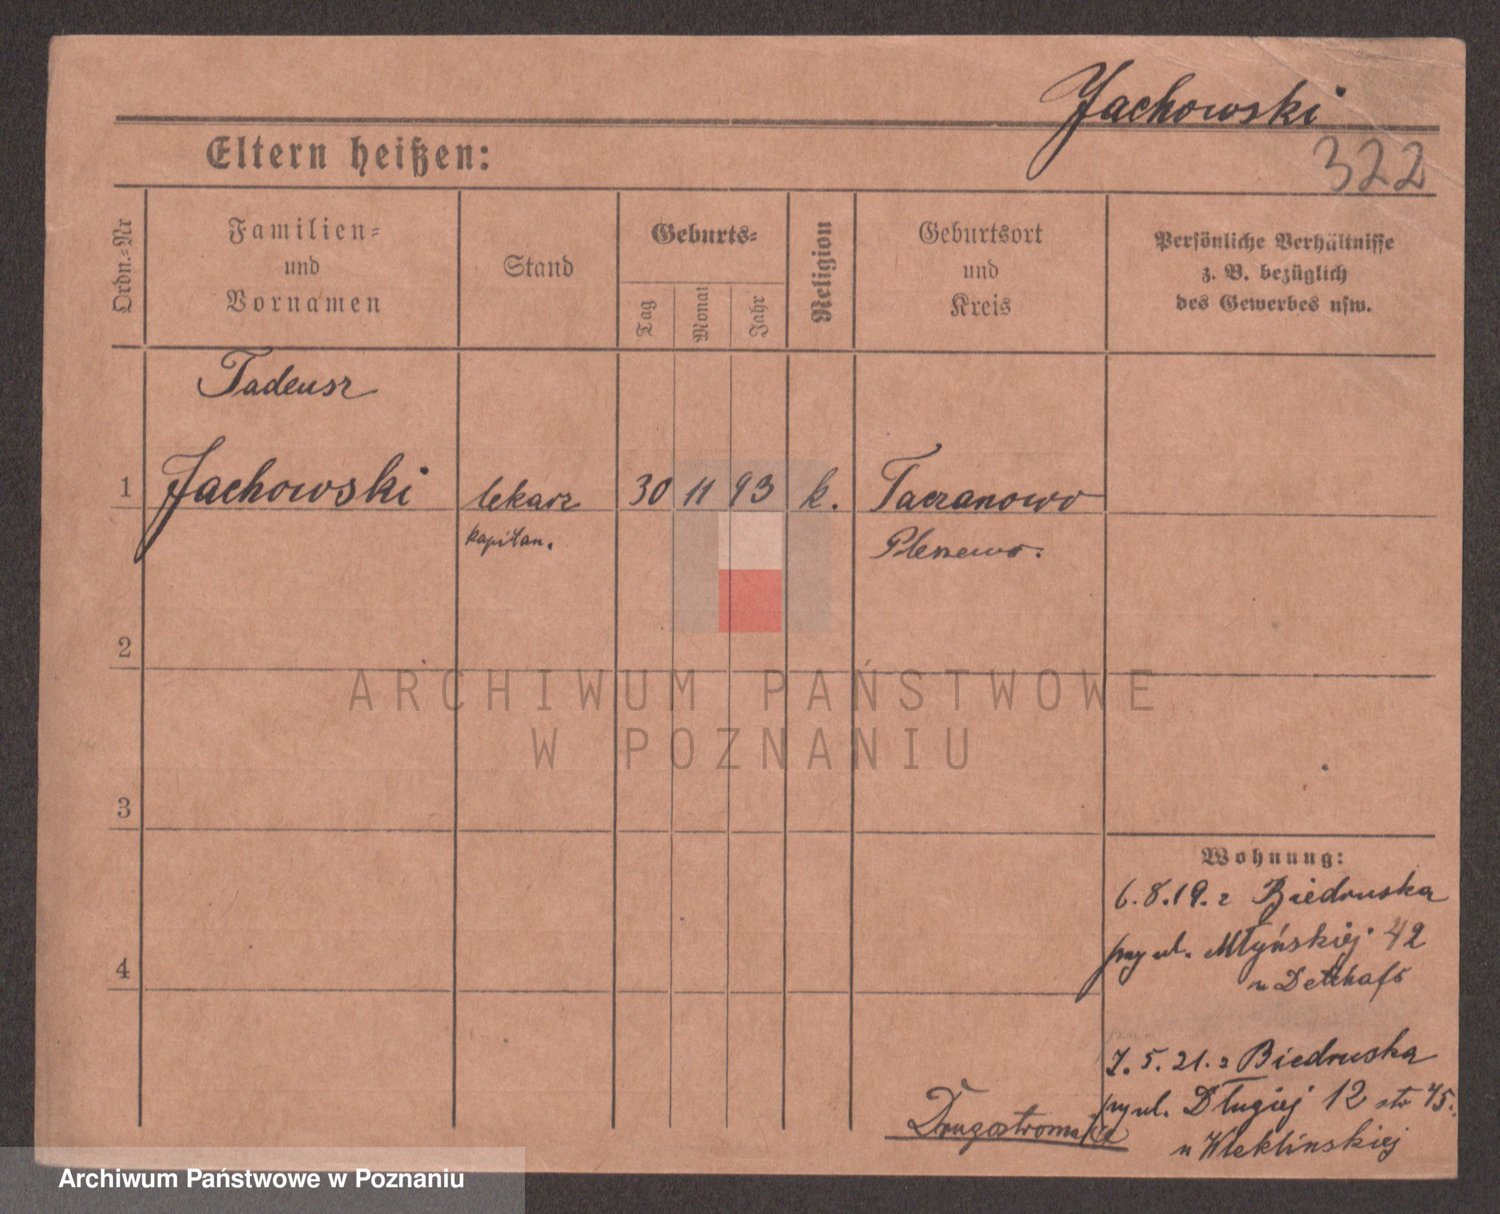 Jachowski
322
Eltern heißen:
Ordn.-Nr
Familien-
und
Vornamen
Stand
Geburts-
Tag
Monat
Jahr
Religion
Geburtsort
und
Kreis
Persönliche Verhältnisse
z. B. bezüglich
des Gewerbes usw.
Tadeusz
1 Jachowski lekarz 30 11 93 k. Taczanowo
kapitan. Pleszewo.
2
3
4
Wohnung:
6.8.19. z Biedruska
przy ul. Młyńskiej 42
u
7.5.21. z Biedruska
przy ul. Długiej 12 str 45.
u Kleklińskiej
ARCHIWUM PAŃSTWOWE
W POZNANIU
Archiwum Państwowe w Poznaniu